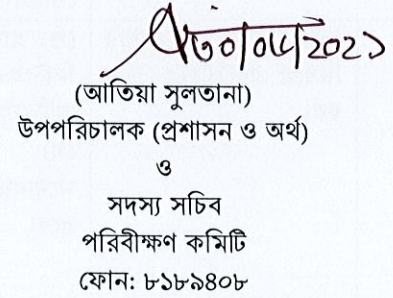 ৩০/০৫/২০২১
(আতিয়া সুলতানা)
উপপরিচালক (প্রশাসন ও অর্থ)
ও
সদস্য সচিব
পরিবীক্ষণ কমিটি
ফোন: ৮১৮৯৪০৮